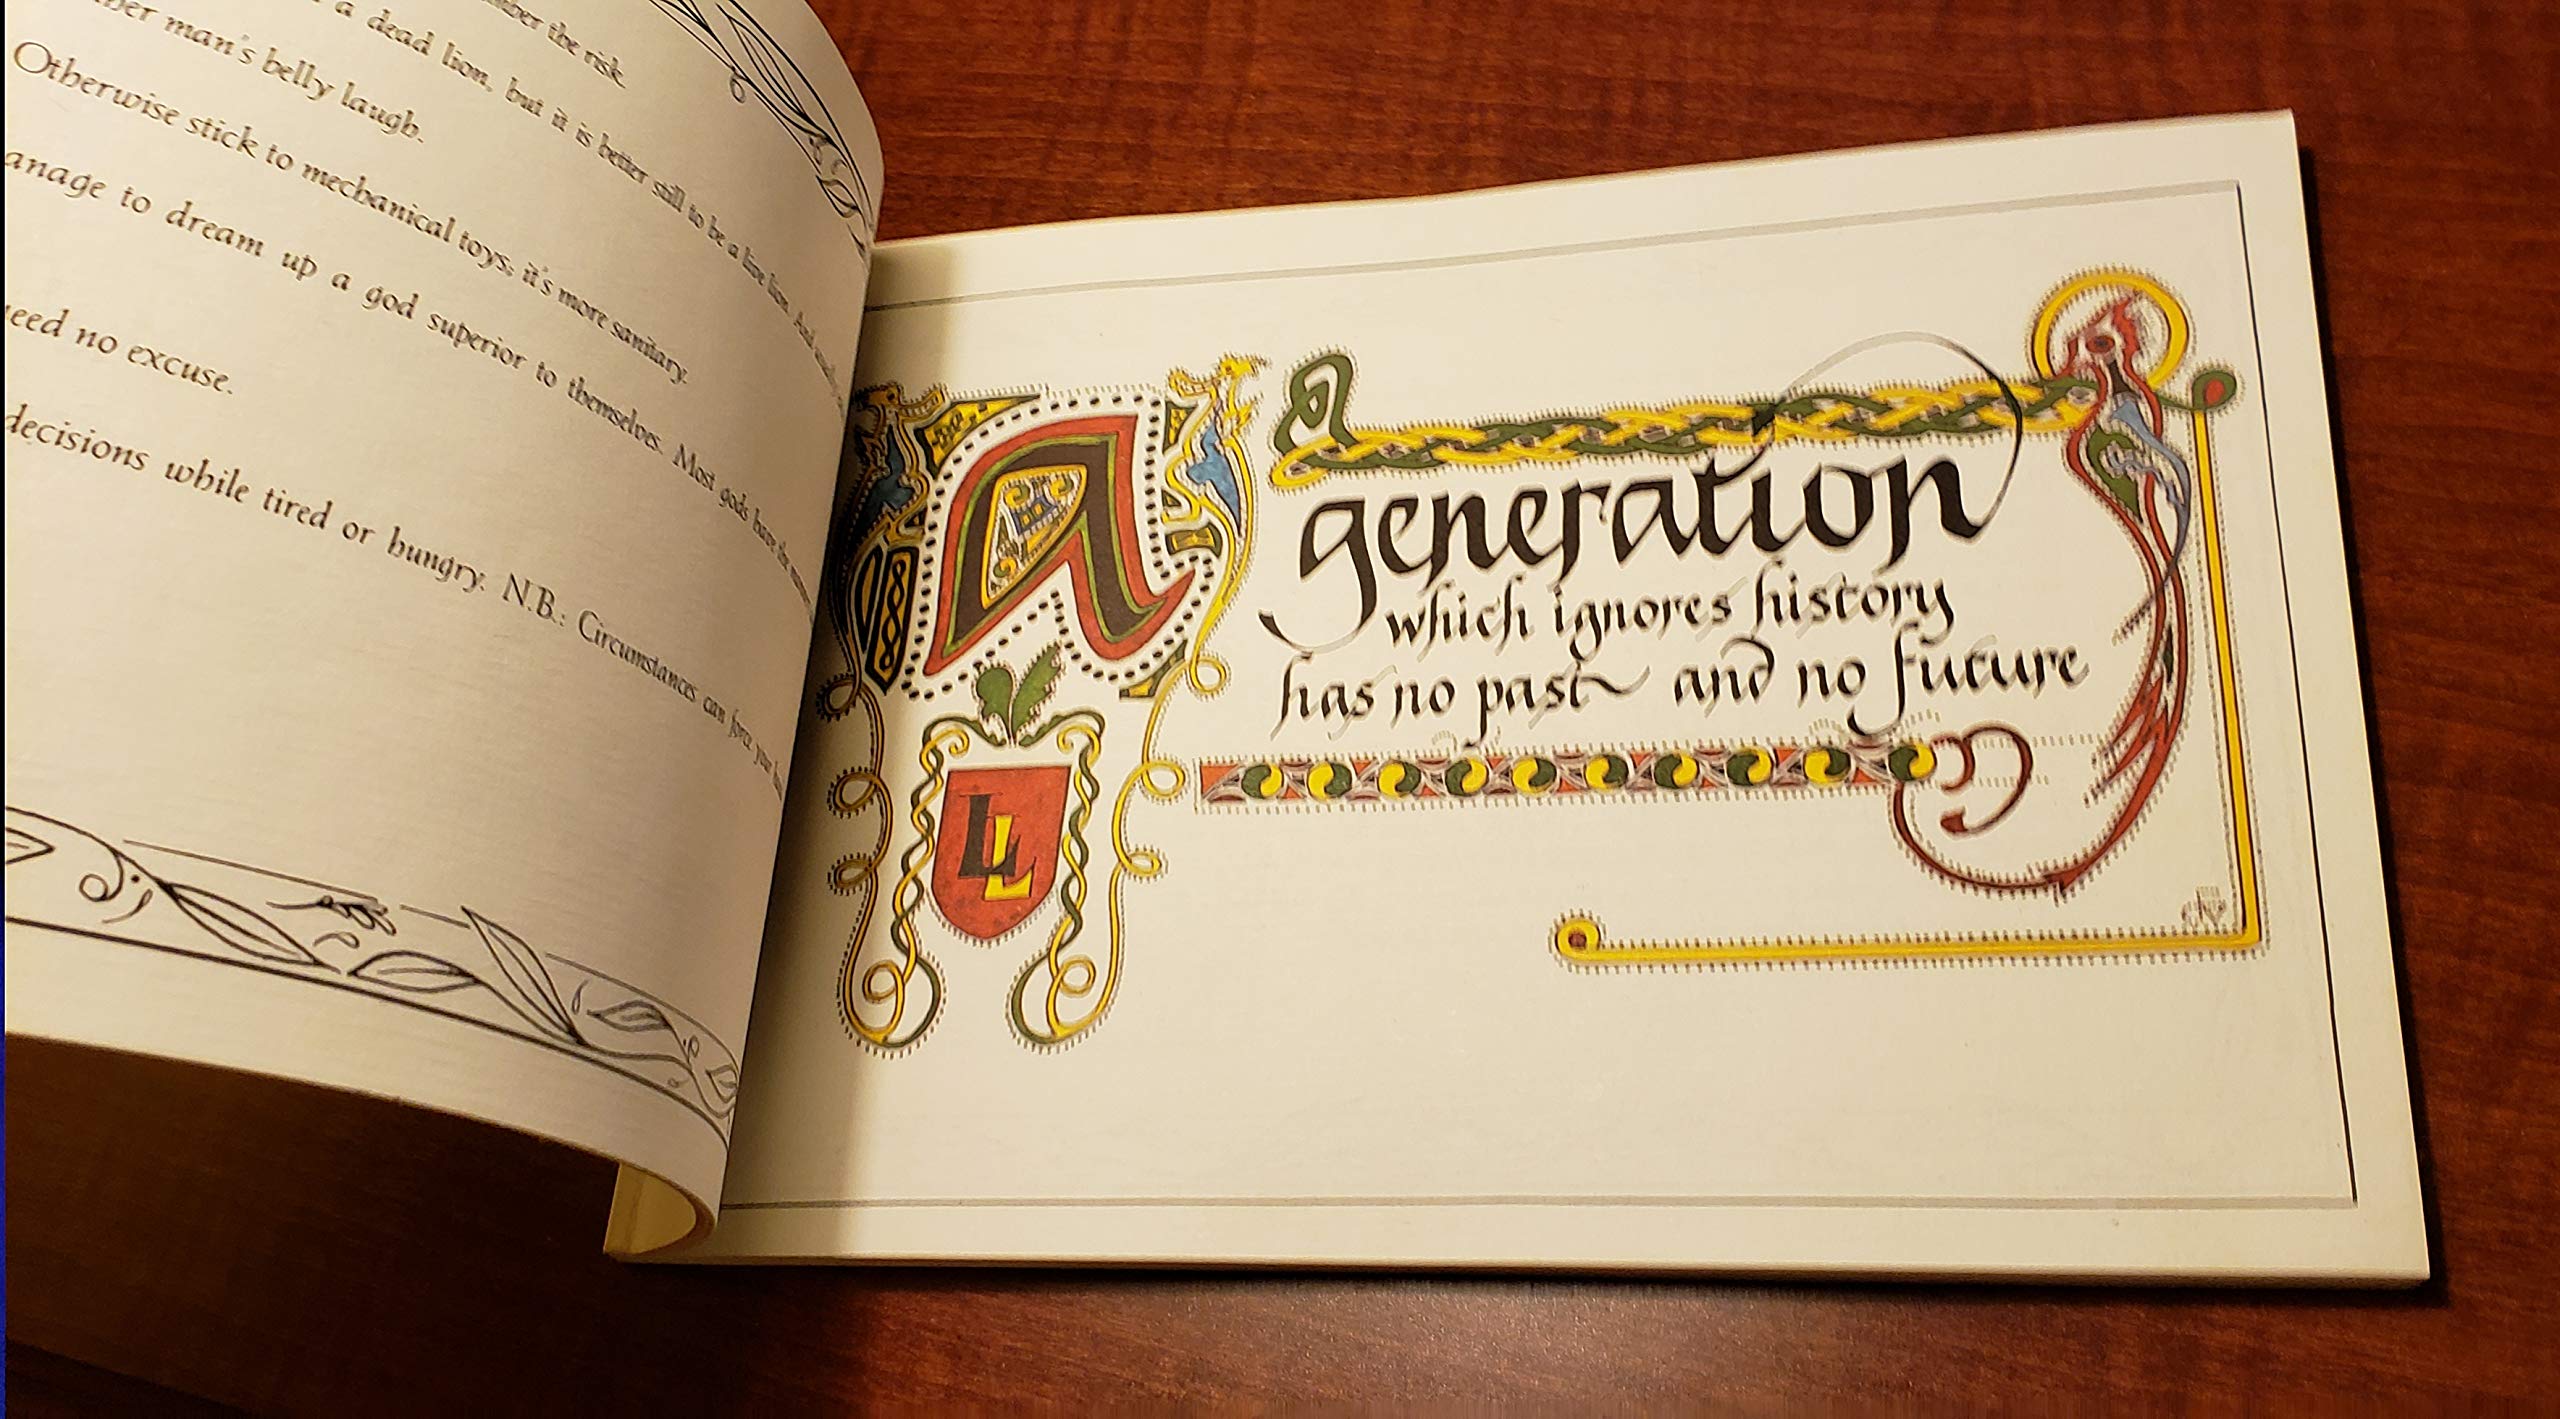 ther the risk.
a dead lion, but it is better still to be a live lion. And
man's belly laugh.
Otherwise stick to mechanical toys; it's more sanitary.
anage to dream up a god superior to themselves. Most gods have the
eed no excuse.
decisions while tired or hungry. N.B.: Circumstances can force your
a generation
which ignores history
has no past and no future
LL